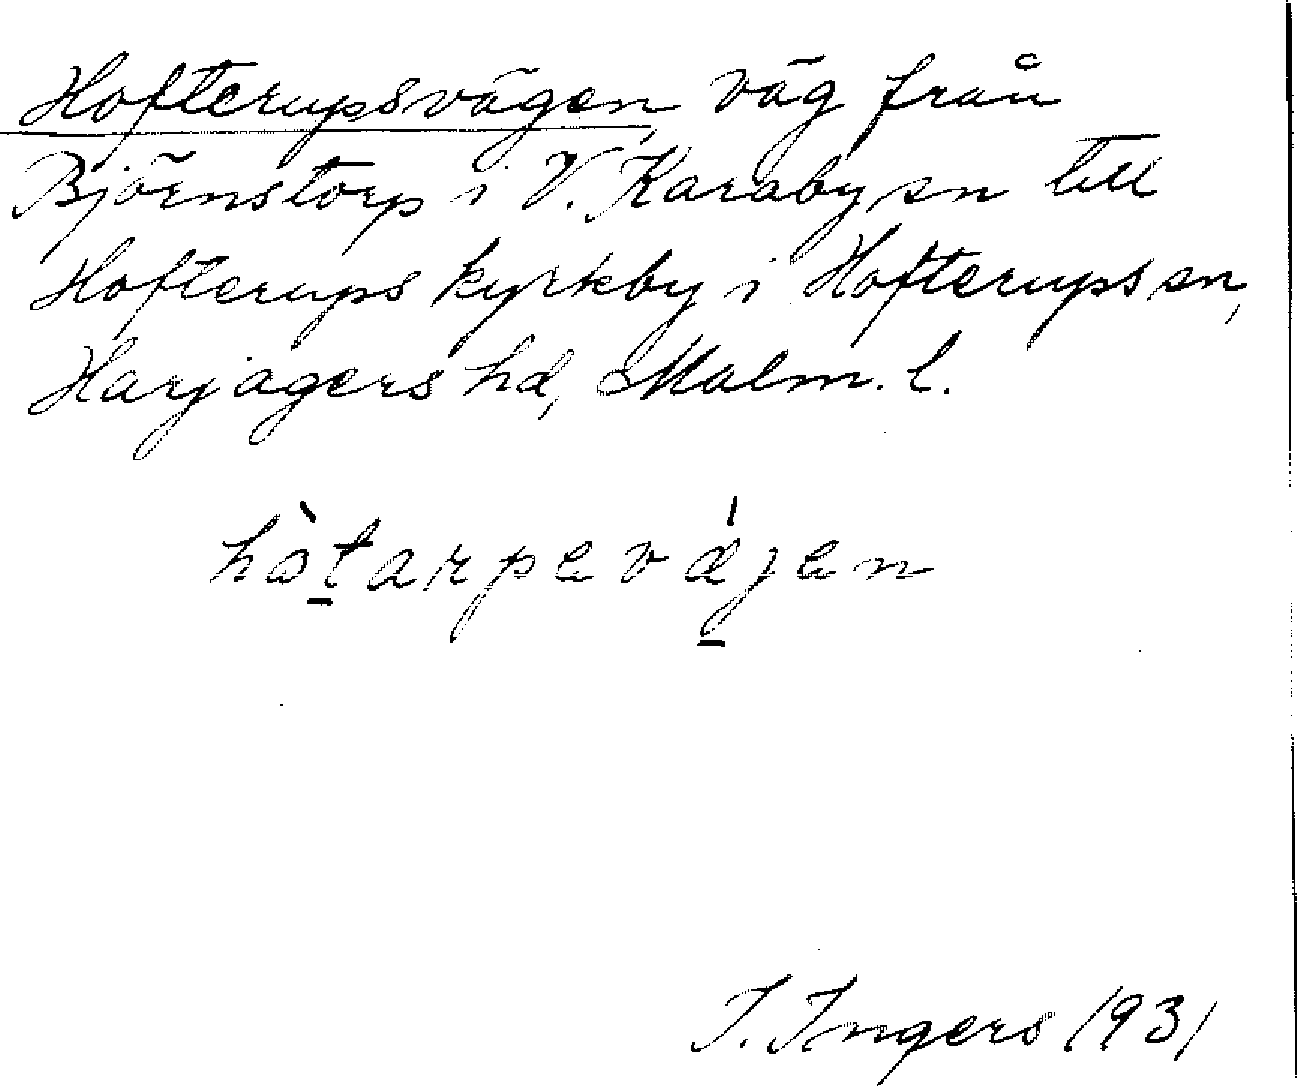 Hofterupsvägen, väg från
Björnstorp i V. Karaby sn till
Hofterups kyrkby i Hofterups sn,
Harjagers hd, Malm. l.
hòtarpevǽjen
I. Ingers 1931